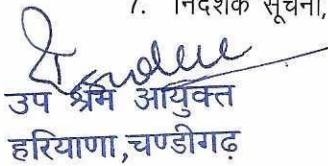 7. निदेशक सूचना,
उप श्रम आयुक्त
हरियाणा,चण्डीगढ़